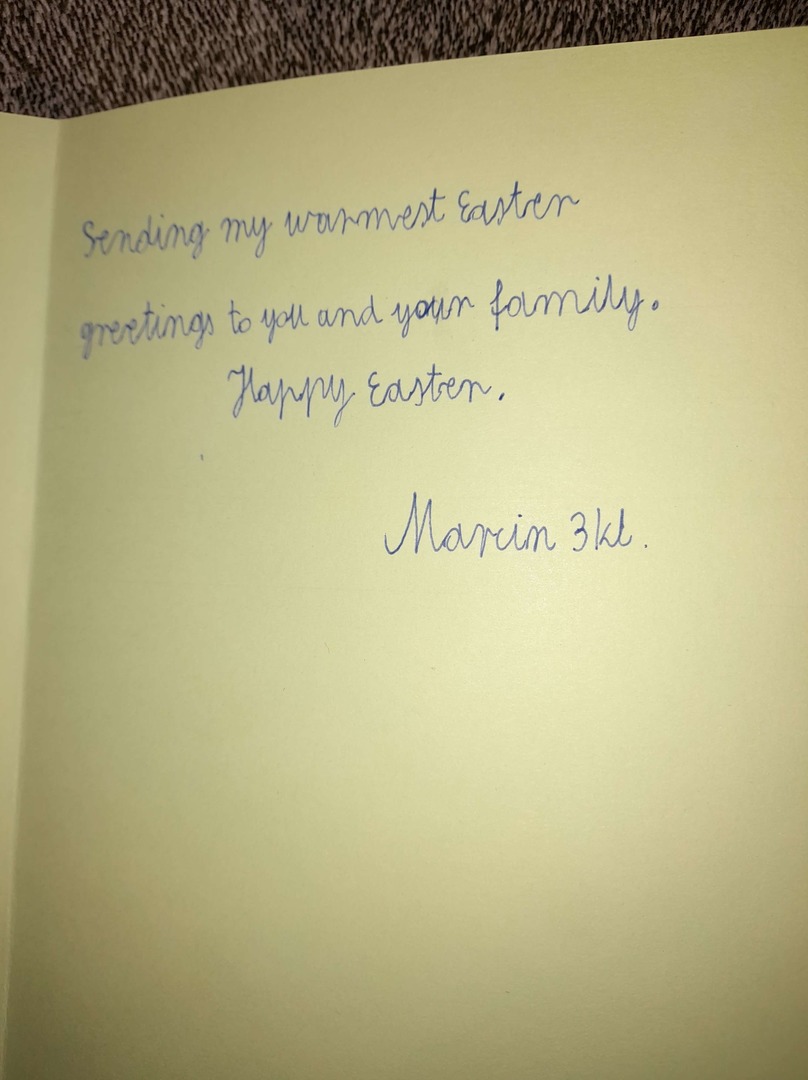 Sending my warmest Easter
greetings to you and your family.
Happy Easter.
Marcin 3kl.